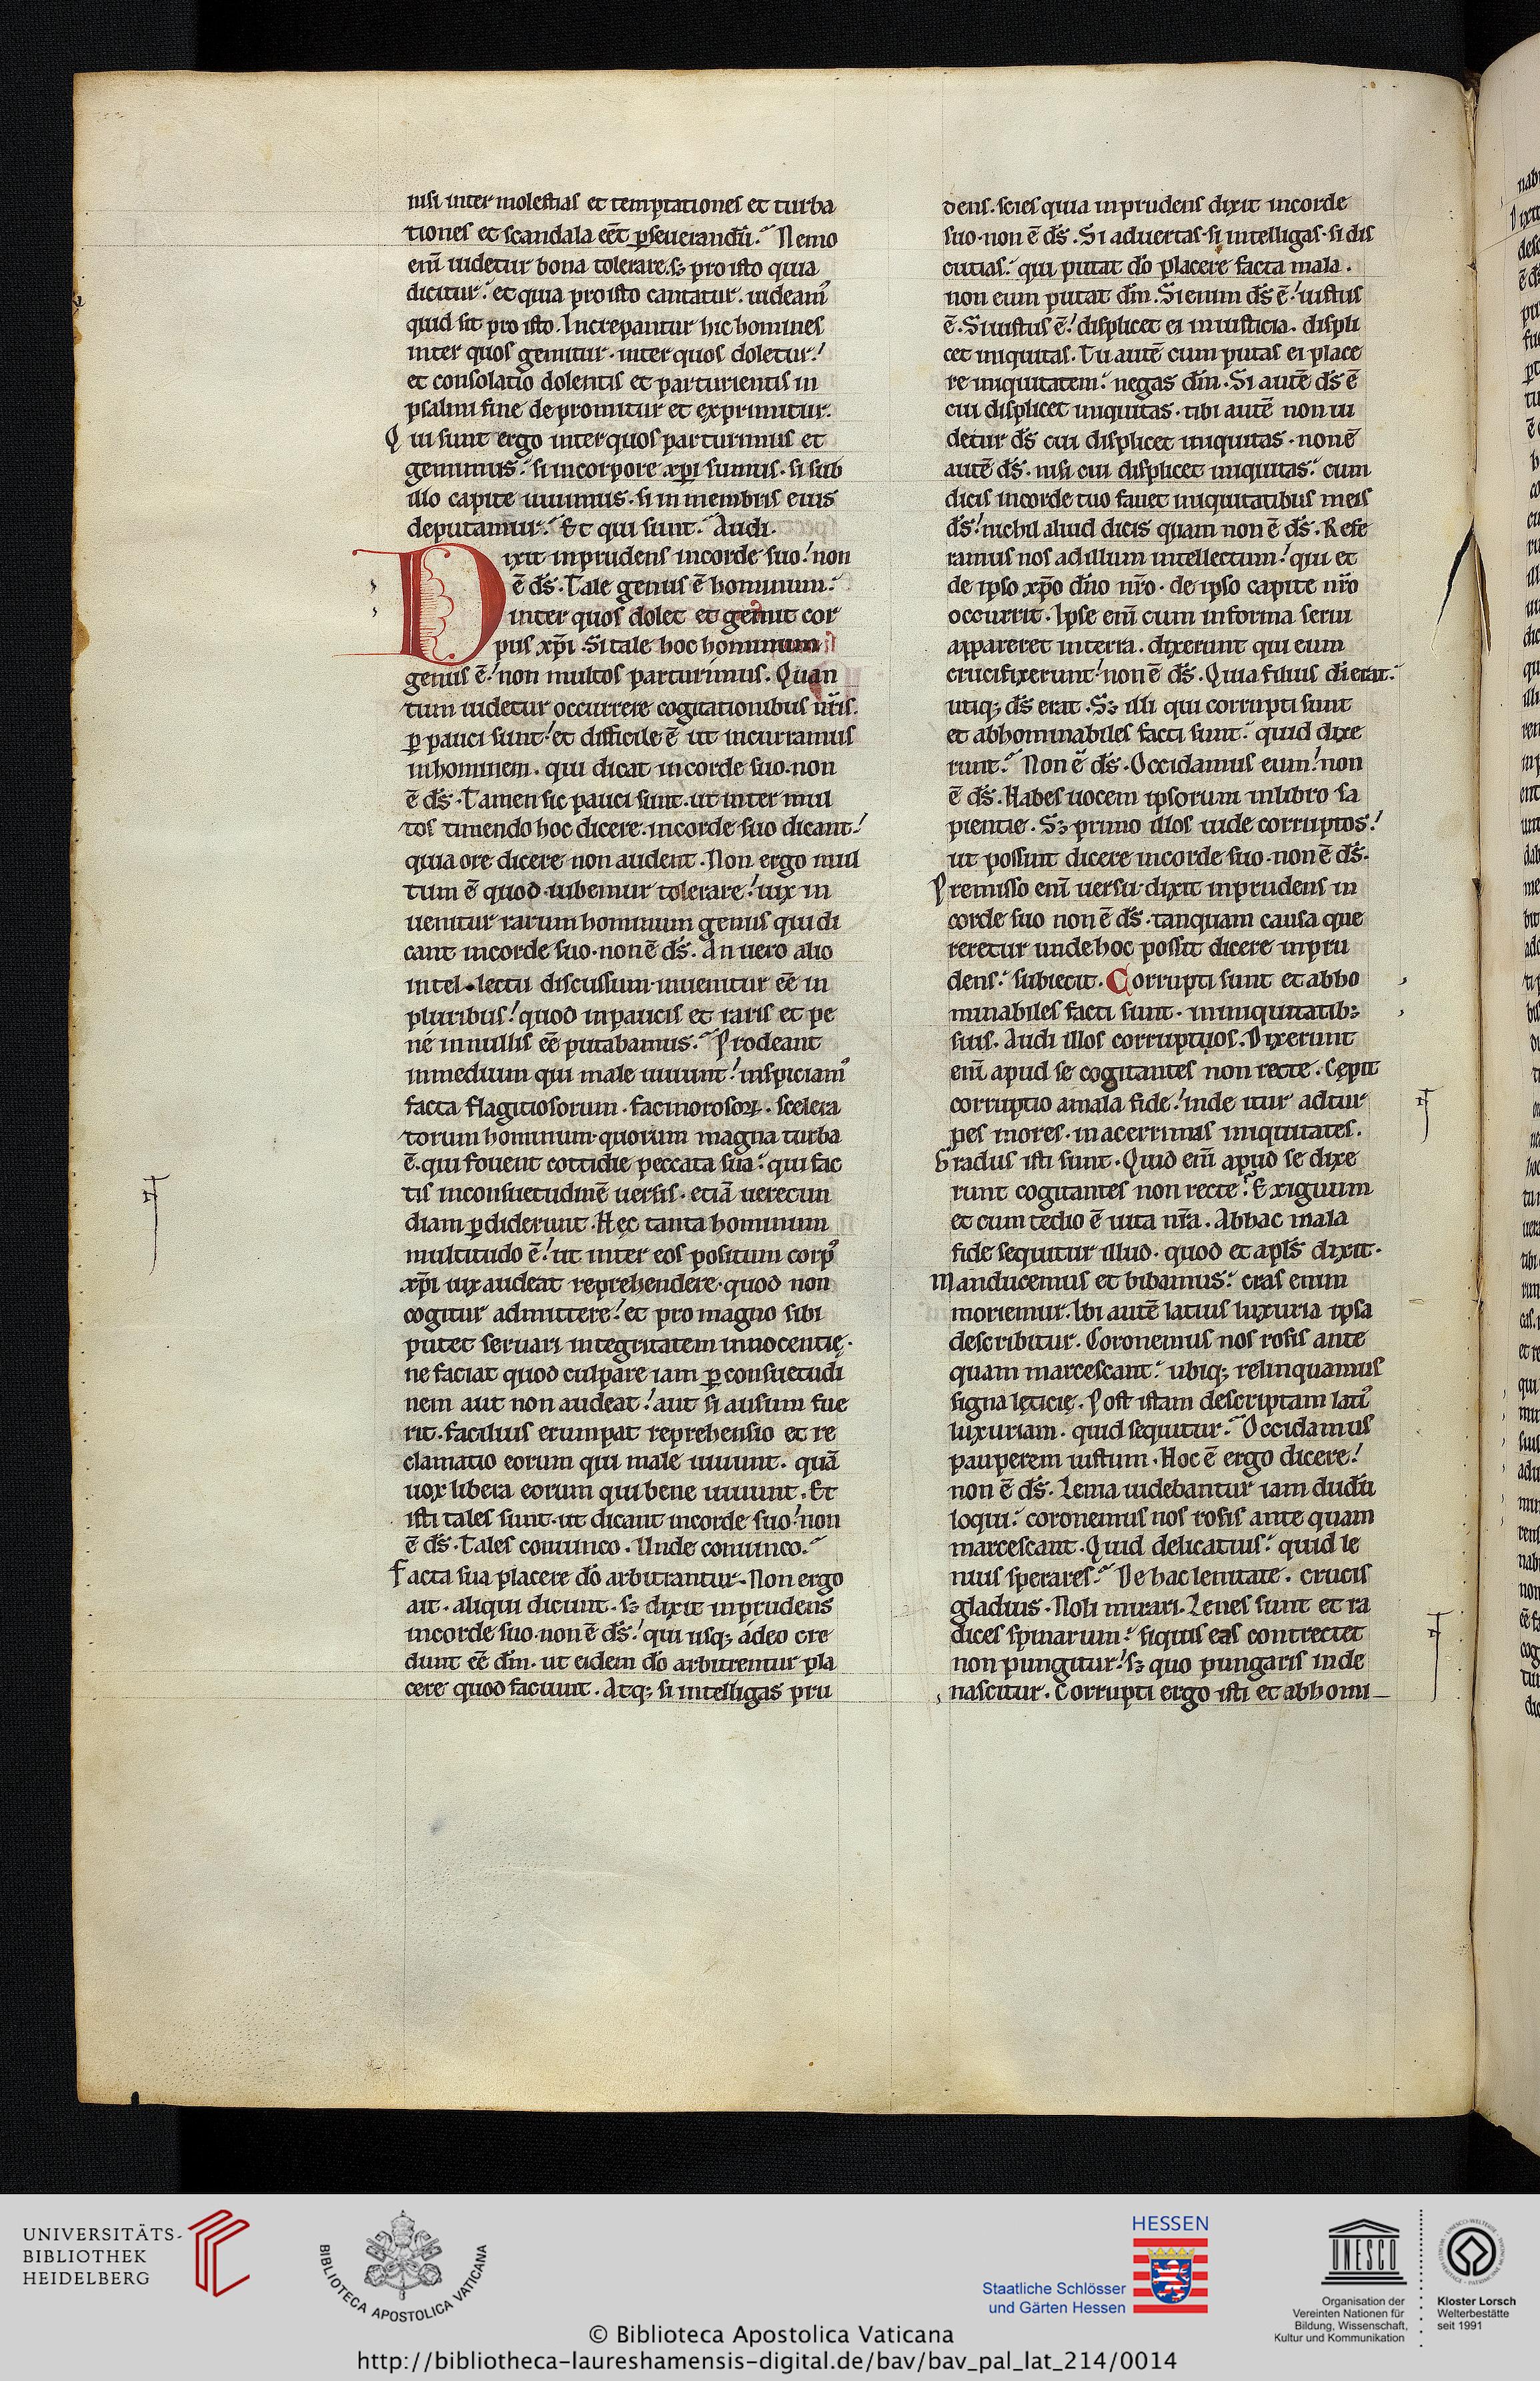 nisi inter molestias et temptationes et turba
tiones et scandala eēt ꝑseuerandū. Nemo
enī uidetur bona tolerare. sꝫ pro isto quia
dicitur. et quia pro isto cantatur. uideamꝰ
quid sit pro isto. Increpantur hic homines
inter quos gemitur. inter quos doletur.
et consolatio dolentis et parturientis in
psalmi fine depromitur et exprimitur.
Qui sunt ergo inter quos parturimus et
gemimus. si in corpore xp̄i sumus. si sub
illo capite uiuimus. si in membris eius
deputamur. Et qui sunt. Audi.
Dixit inprudens in corde suo. non
ē ds̄. Tale genus ē hominum.
inter quos dolet et gemit cor
pus xp̄i. Si tale hoc hominum
genus ē. non multos parturimus. Quan
tum uidetur occurrere cogitationibus nr̄is.
ꝑ pauci sunt. et difficile ē ut incurramus
in hominem. qui dicat in corde suo. non
ē ds̄. Tamen sic pauci sunt. ut inter mul
tos timendo hoc dicere. in corde suo dicant.
quia ore dicere non audent. Non ergo mul
tum ē quod iubemur tolerare. uix in
uenitur rarum hominum genus qui di
cant in corde suo. non ē ds̄. An uero alio
intellectu discussum. inuenitur eē in
pluribus. quod in paucis et raris et pe
ne in nullis eē putabamus. Prodeant
in medium qui male uiuunt. inspiciamꝰ
facta flagitiosorum. facinorosoꝝ. scelera
torum hominum. quorum magna turba
ē. qui fouent cottidie peccata sua. qui fac
tis in consuetudinē uersis. etiā uerecun
diam ꝑdiderunt. Hęc tanta hominum
multitudo ē. ut inter eos positum corpꝰ
xp̄i uix audeat reprehendere. quod non
cogitur admittere. et pro magno sibi
putet seruari integritatem innocentię.
ne faciat quod culpare iam ꝑ consuetudi
nem aut non audeat. aut si ausum fue
rit. facilius erumpat reprehensio et re
clamatio eorum qui male uiuunt. quā
uox libera eorum qui bene uiuunt. Et
isti tales sunt. ut dicant in corde suo. non
ē ds̄. Tales conuinco. Unde conuinco.
Facta sua placere dō arbitrantur. Non ergo
ait. aliqui dicunt. sꝫ dixit inprudens
in corde suo. non ē ds̄. qui usqꝫ adeo cre
dunt eē dm̄. ut eidem dō arbitrentur pla
cere quod faciunt. Atqꝫ si intelligas pru
dens. scies quia inprudens dixit in corde
suo. non ē ds̄. Si aduertas. si intelligas. si dis
cutias. qui putat dō placere facta mala.
non eum putat dm̄. Si enim ds̄ ē. iustus
ē. Si iustus ē. displicet ei iniusticia. displi
cet iniquitas. Tu autē cum putas ei place
re iniquitatem. negas dm̄. Si autē ds̄ ē
cui displicet iniquitas. tibi autē non ui
detur ds̄ cui displicet iniquitas. non ē
autē ds̄. nisi cui displicet iniquitas. cum
dicis in corde tuo fauet iniquitatibus meis
ds̄. nichil aliud dicis quam non ē ds̄. Refe
ramus nos ad illum intellectum. qui et
de ipso xp̄o dn̄o nr̄o. de ipso capite nr̄o
occurrit. Ipse enī cum in forma serui
appareret in terra. dixerunt qui eum
crucifixerunt. non ē ds̄. Quia filius dī erat.
utiqꝫ ds̄ erat. Sꝫ illi qui corrupti sunt
et abhominabiles facti sunt. quid dixe
runt. Non ē ds̄. Occidamus eum. non
ē ds̄. Habes uocem ipsorum in libro sa
pientie. Sꝫ primo illos uide corruptos.
ut possint dicere in corde suo. non ē ds̄.
Premisso enī uersu. dixit inprudens in
corde suo non ē ds̄. tanquam causa que
reretur unde hoc possit dicere inpru
dens. subiecit. Corrupti sunt et abho
minabiles facti sunt. in iniquitatibꝫ
suis. Audi illos corruptuos. Dixerunt
enī apud se cogitantes non recte. Cępit
corruptio a mala fide. inde itur ad tur
pes mores. in acerrimas iniquitates.
Gradus isti sunt. Quid enī apud se dixe
runt cogitantes non recte. Exiguum
et cum tedio ē uita nr̄a. Ab hac mala
fide sequitur illud. quod et apls̄ dixit.
Manducemus et bibamus. cras enim
moriemur. Ibi autē latius luxuria ipsa
describitur. Coronemus nos rosis ante
quam marcescant. ubiqꝫ relinquamus
signa lęticię. Post istam descriptam latiꝰ
luxuriam. quid sequitur. Occidamus
pauperem iustum. Hoc ē ergo dicere.
non ē ds̄. Lenia uidebantur iam dudū
loqui. coronemus nos rosis ante quam
marcescant. Quid delicatius. quid le
nius sperares. De hac lenitate. crucis
gladius. Noli mirari. Lenes sunt et ra
dices spinarum. si quis eas contrectet
non pungitur. sꝫ quo pungaris inde
nascitur. Corrupti ergo isti et abhomi
UNIVERSITÄTS-
BIBLIOTHEK
HEIDELBERG
BIBLIOTECA APOSTOLICA VATICANA
HESSEN
Staatliche Schlösser
und Gärten Hessen
UNESCO
Organisation der
Vereinten Nationen für
Bildung, Wissenschaft,
Kultur und Kommunikation
Kloster Lorsch
Welterbestätte
seit 1991
© Biblioteca Apostolica Vaticana
http://bibliotheca-laureshamensis-digital.de/bav/bav_pal_lat_214/0014